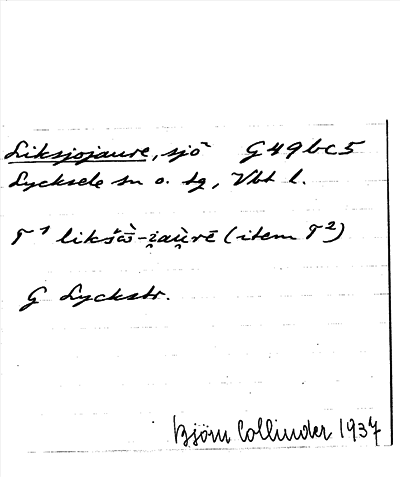 Liksjojaure, sjö G49bc5
Lycksele sn o. tg, Vbt l.
T¹ likšω̄̀-i̯aù̯rē (item T²)
G Lyckstr.
Björn Collinder 1937